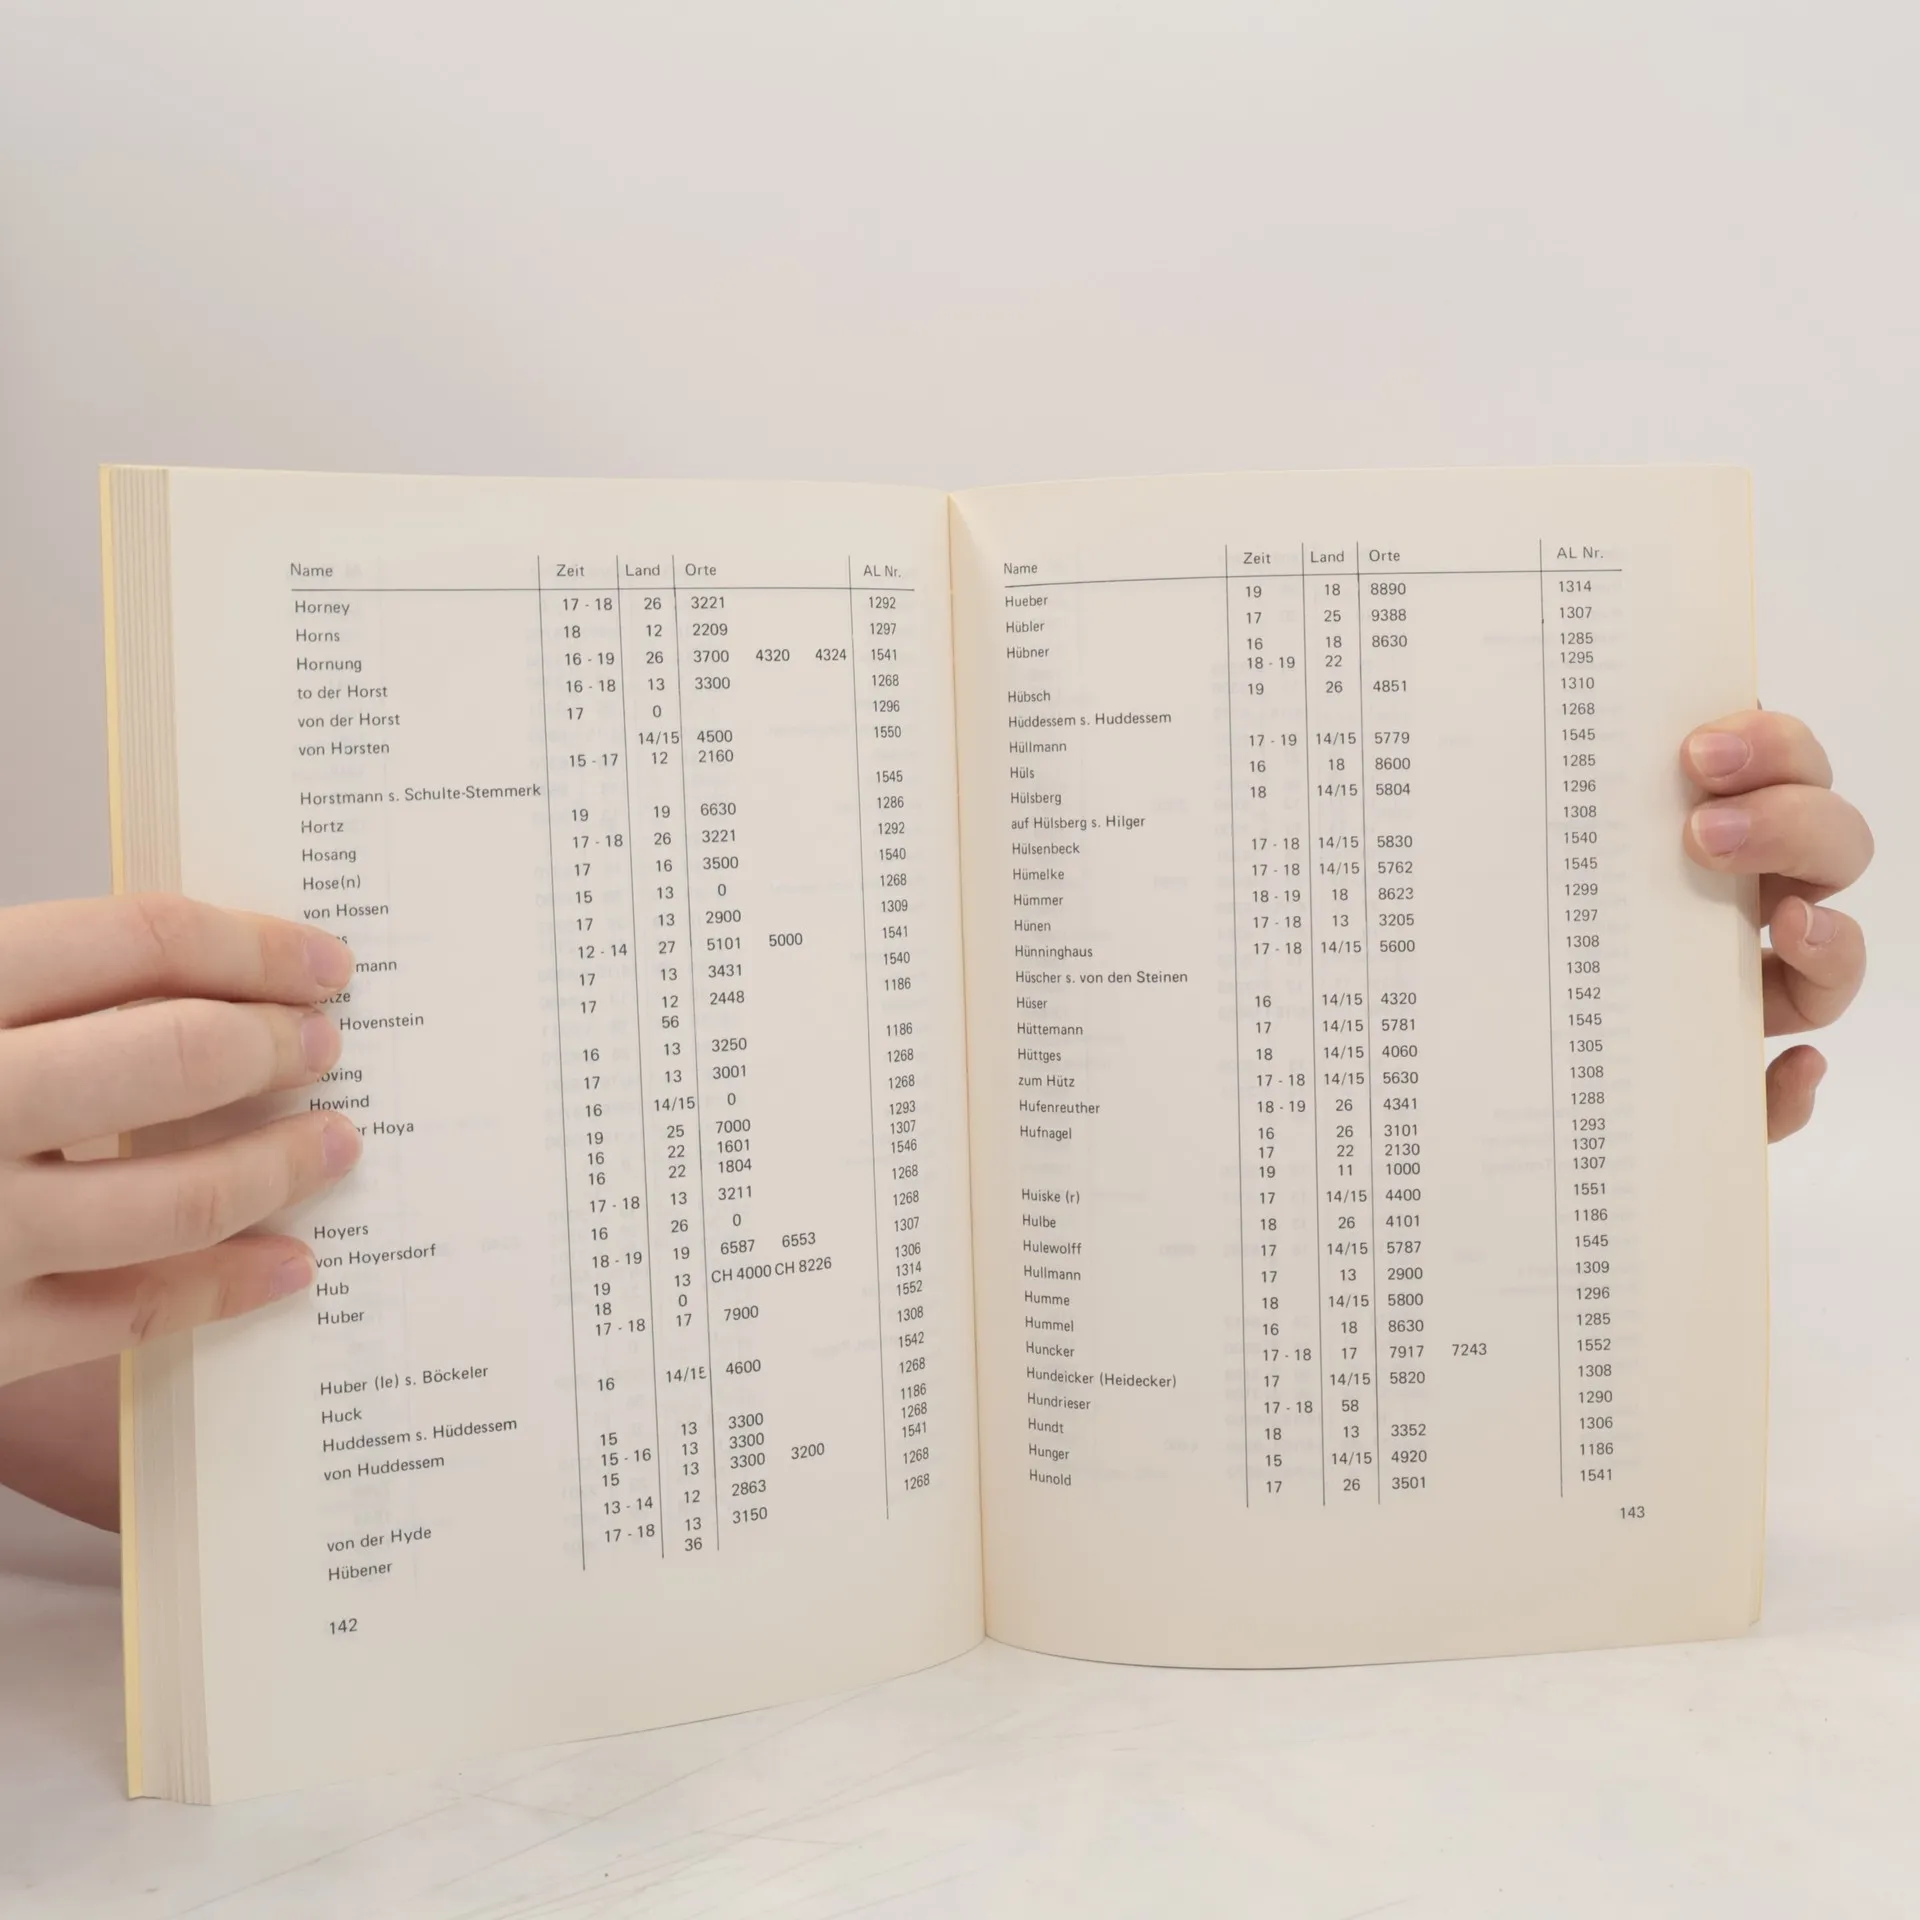 Name Zeit Land Orte AL Nr.
Horney 17 - 18 26 3221 1292
Horns 18 12 2209 1297
Hornung 16 - 19 26 3700 4320 4324 1541
to der Horst 16 - 18 13 3300 1268
von der Horst 17 0 1296
von Horsten 14/15 4500 1550
15 - 17 12 2160
Horstmann s. Schulte-Stemmerk 1545
Hortz 19 19 6630 1286
Hosang 17 - 18 26 3221 1292
Hose(n) 17 16 3500 1540
von Hossen 15 13 0 1268
17 13 2900 1309
mann 12 - 14 27 5101 5000 1541
17 13 3431 1540
Hovenstein 17 12 2448 1186
56
oving 16 13 3250 1186
Howind 17 13 3001 1268
r Hoya 16 14/15 0 1268
19 25 7000 1293
16 22 1601 1307
16 22 1804 1546
Hoyers 17 - 18 13 3211 1268
von Hoyersdorf 16 26 0 1268
Hub 18 - 19 19 6587 6553 1307
Huber 19 13 CH 4000 CH 8226 1306
18 0 1314
17 - 18 17 7900 1552
Huber (le) s. Böckeler 1308
Huck 16 14/15 4600 1542
Huddessem s. Hüddessem 1268
von Huddessem 15 13 3300 1186
15 - 16 13 3300 1268
15 13 3300 3200 1541
von der Hyde 13 - 14 12 2863 1268
Hübener 17 - 18 13 3150 1268
36
142
Name Zeit Land Orte AL Nr.
Hueber 19 18 8890 1314
Hübler 17 25 9388 1307
Hübner 16 18 8630 1285
18 - 19 22 1295
Hübsch 19 26 4851 1310
Hüddessem s. Huddessem 1268
Hüllmann 17 - 19 14/15 5779 1545
Hüls 16 18 8600 1285
Hülsberg 18 14/15 5804 1296
auf Hülsberg s. Hilger 1308
Hülsenbeck 17 - 18 14/15 5830 1540
Hümelke 17 - 18 14/15 5762 1545
Hümmer 18 - 19 18 8623 1299
Hünen 17 - 18 13 3205 1297
Hünninghaus 17 - 18 14/15 5600 1308
Hüscher s. von den Steinen 1308
Hüser 16 14/15 4320 1542
Hüttemann 17 14/15 5781 1545
Hüttges 18 14/15 4060 1305
zum Hütz 17 - 18 14/15 5630 1308
Hufenreuther 18 - 19 26 4341 1288
Hufnagel 16 26 3101 1293
17 22 2130 1307
19 11 1000 1307
Huiske (r) 17 14/15 4400 1551
Hulbe 18 26 4101 1186
Hulewolff 17 14/15 5787 1545
Hullmann 17 13 2900 1309
Humme 18 14/15 5800 1296
Hummel 16 18 8630 1285
Huncker 17 - 18 17 7917 7243 1552
Hundeicker (Heidecker) 17 14/15 5820 1308
Hundrieser 17 - 18 58 1290
Hundt 18 13 3352 1306
Hunger 15 14/15 4920 1186
Hunold 17 26 3501 1541
143